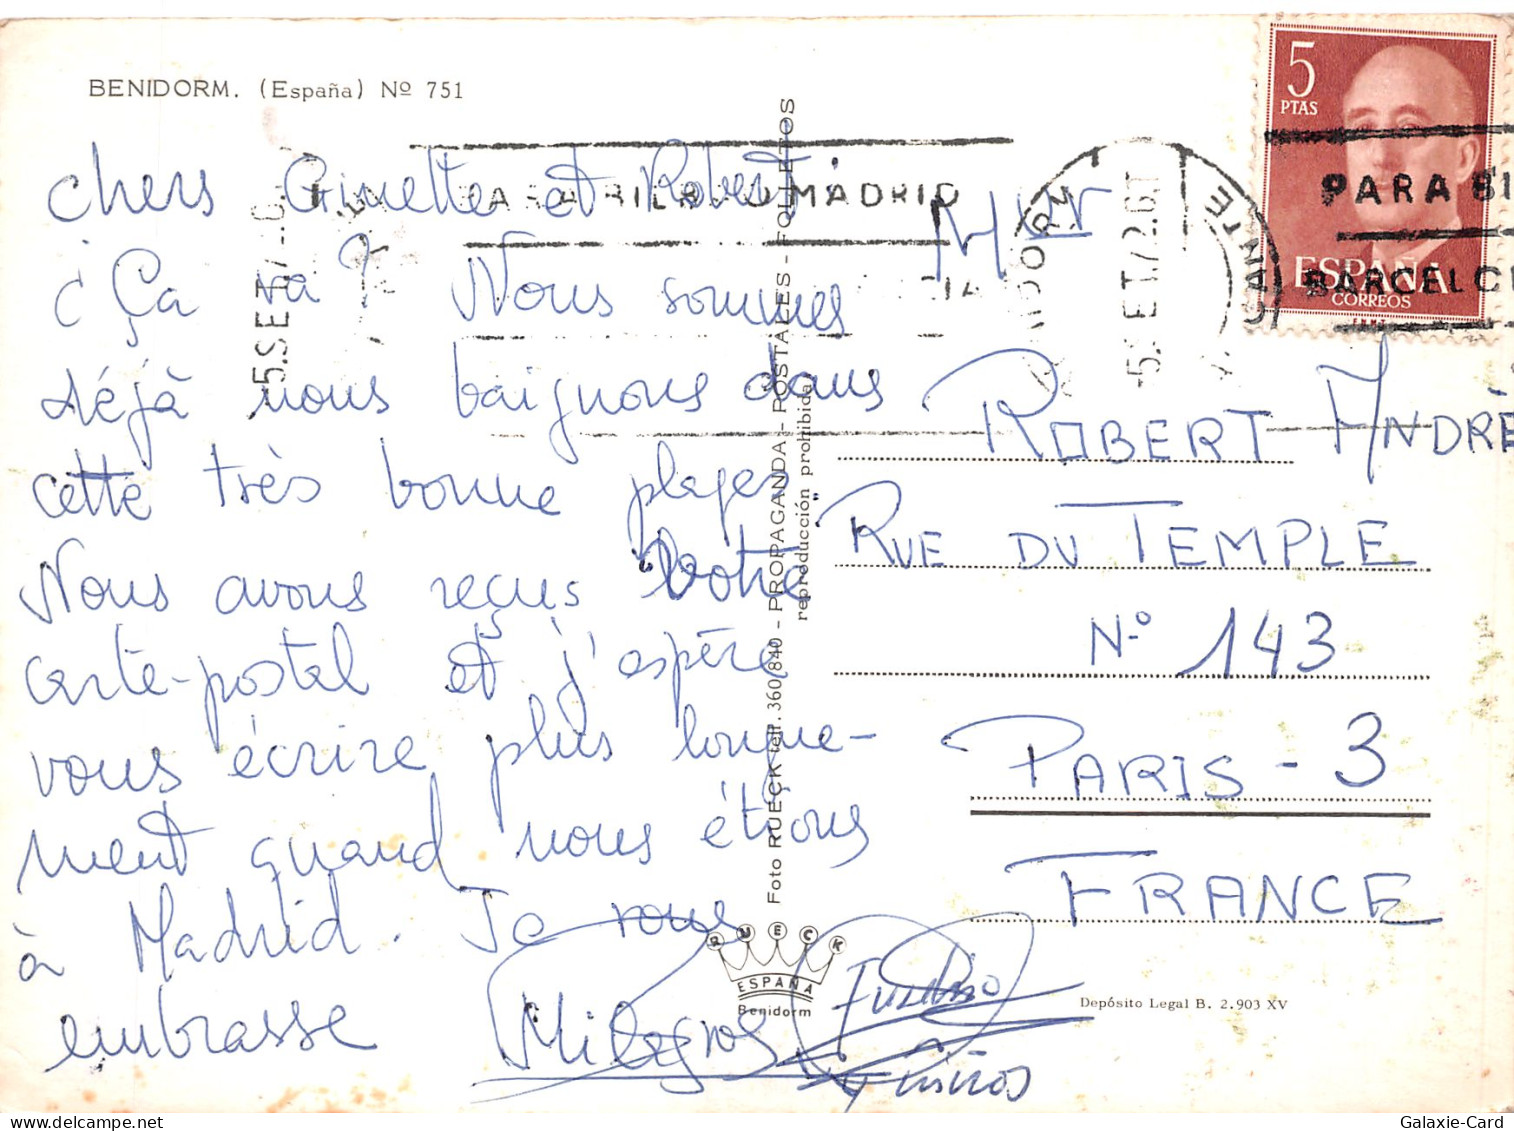 BENIDORM. (España) Nº 751
Chers Ginette et Robert.
¿ Ça va? Nous sommes
déjà nous baignons dans
cette très bonne plages
Nous avons reçus votre
carte-postal et j'espère
vous écrire plus longue-
ment quand nous étions
à Madrid. Je vous
embrasse
Milagros
y niños
Foto RUECK telf. 360 840 - PROPAGANDA - POSTALES - FOLLETOS
reproducción prohibida
RUECK
ESPAÑA
Benidorm
5 PTAS
ESPAÑA
CORREOS
F.N.M.T.
PARA
BARCEL
MADRID
5.SET.72
5.SET.72
Mr
ROBERT ANDRÈ
RUE DU TEMPLE
Nº 143
PARIS - 3
FRANCE
Depósito Legal B. 2.903 XV
Galaxie-Card